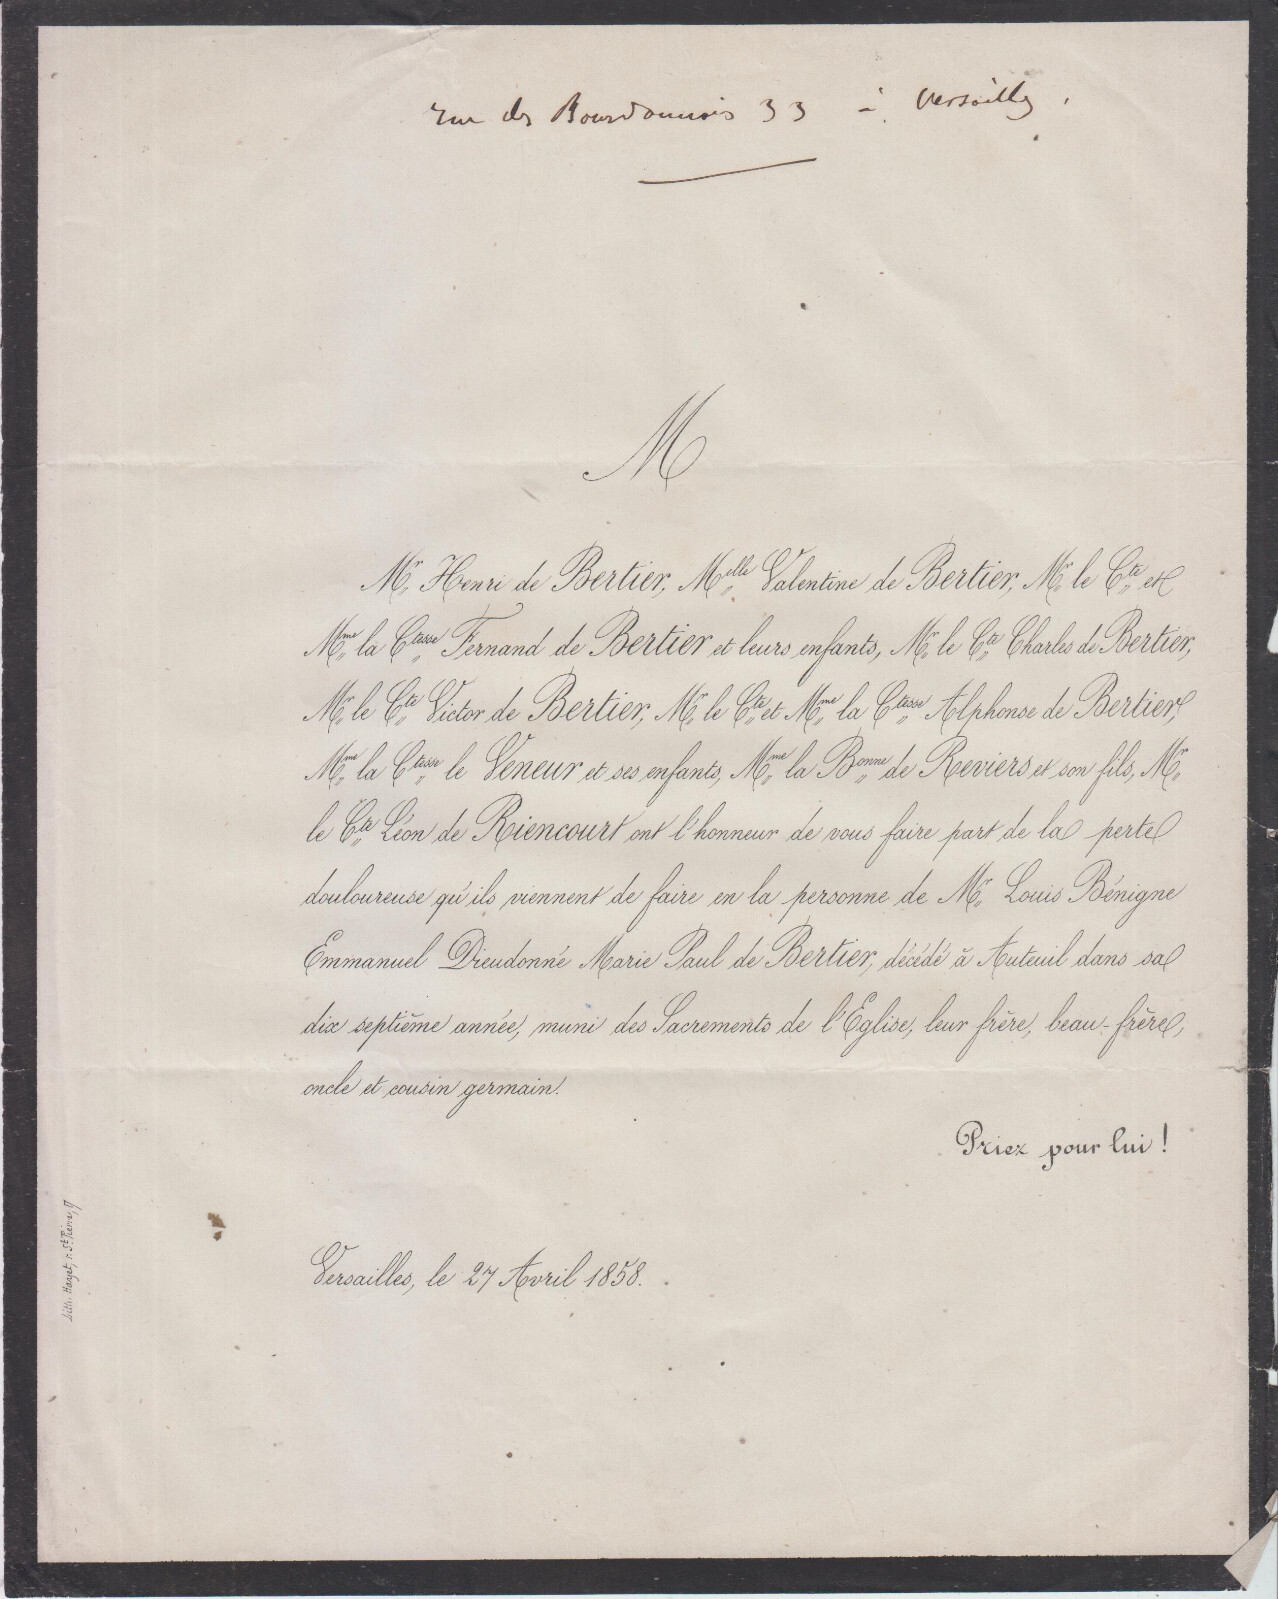 rue des Bourdonnais 33 à Versailles.
M
Mr. Henri de Bertier, Melle Valentine de Bertier, Mr. le Cte et
Mme la Ctesse Fernand de Bertier et leurs enfants, Mr. le Cte Charles de Bertier,
Mr. le Cte Victor de Bertier, Mr. le Cte et Mme la Ctesse Alphonse de Bertier,
Mme la Ctesse le Veneur et ses enfants, Mme la Bonne de Reviers et son fils, Mr.
le Cte Léon de Riencourt ont l'honneur de vous faire part de la perte
douloureuse qu'ils viennent de faire en la personne de Mr. Louis Bénigne
Emmanuel Dieudonné Marie Paul de Bertier, décédé à Auteuil dans sa
dix septième année, muni des Sacrements de l'Eglise, leur frère, beau-frère,
oncle et cousin germain.
Priez pour lui !
Versailles, le 27 Avril 1858.
Lith. r. St. Pierre,